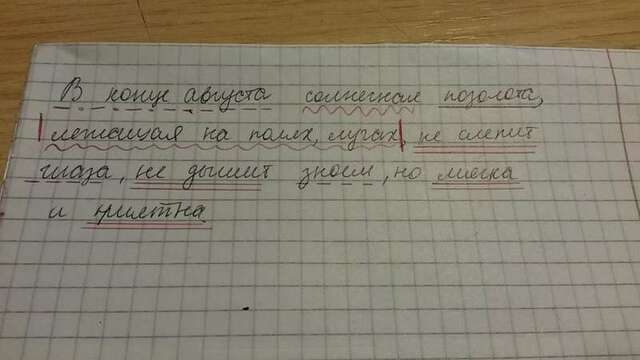 В конце августа солнечная позолота,
лежащая на полях, лугах, не слепит
глаза, не дышит зноем, но мягка
и приятна.